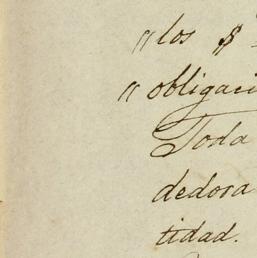 „ los $
„ obligaci
Toda
dedora
tidad.